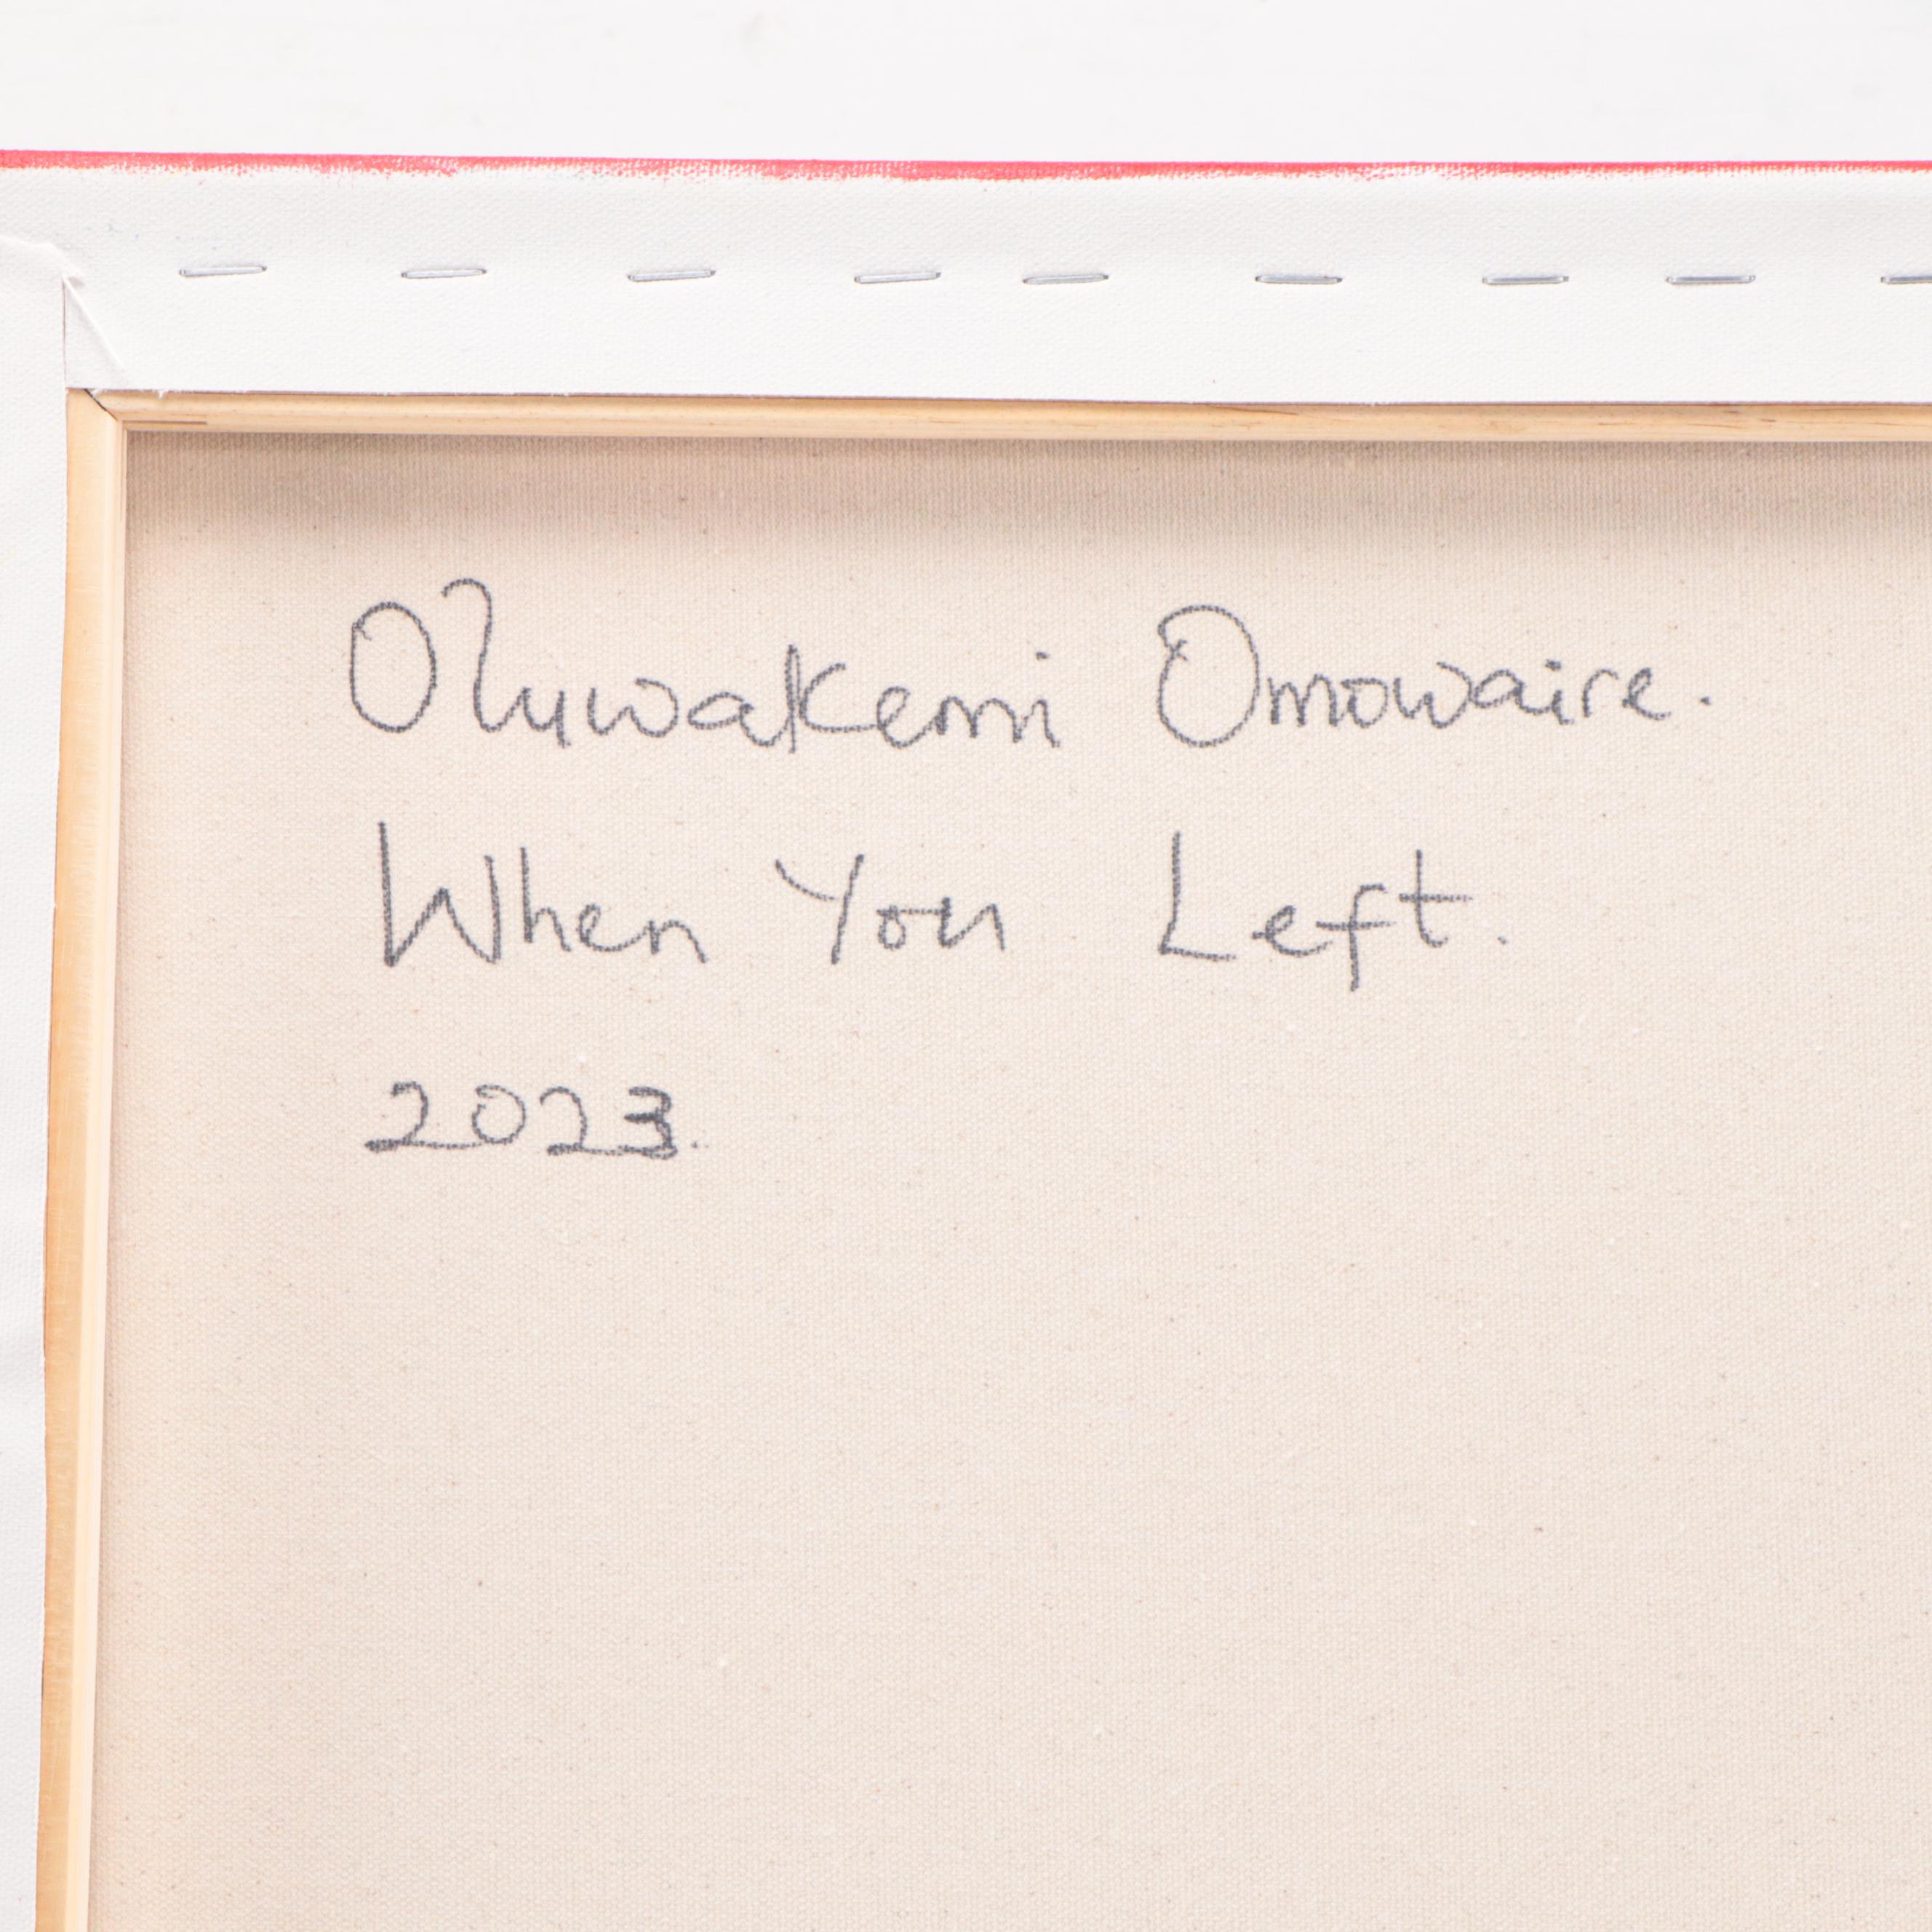 Oluwakemi Omowaire.
When You Left.
2023.